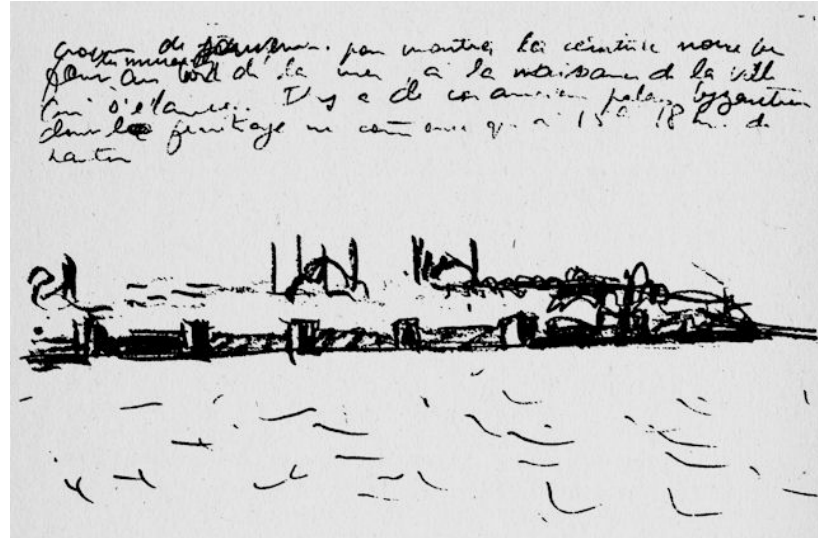 croquis de souvenir. pour montrer la ceinture noire
des murailles
au bord de la mer, à la naissance de la ville
qui s'élance. Il y a de ces anciens palais byzantins
dont le fenêtrage ne commence qu'à 15 à 18 m. de
hauteur